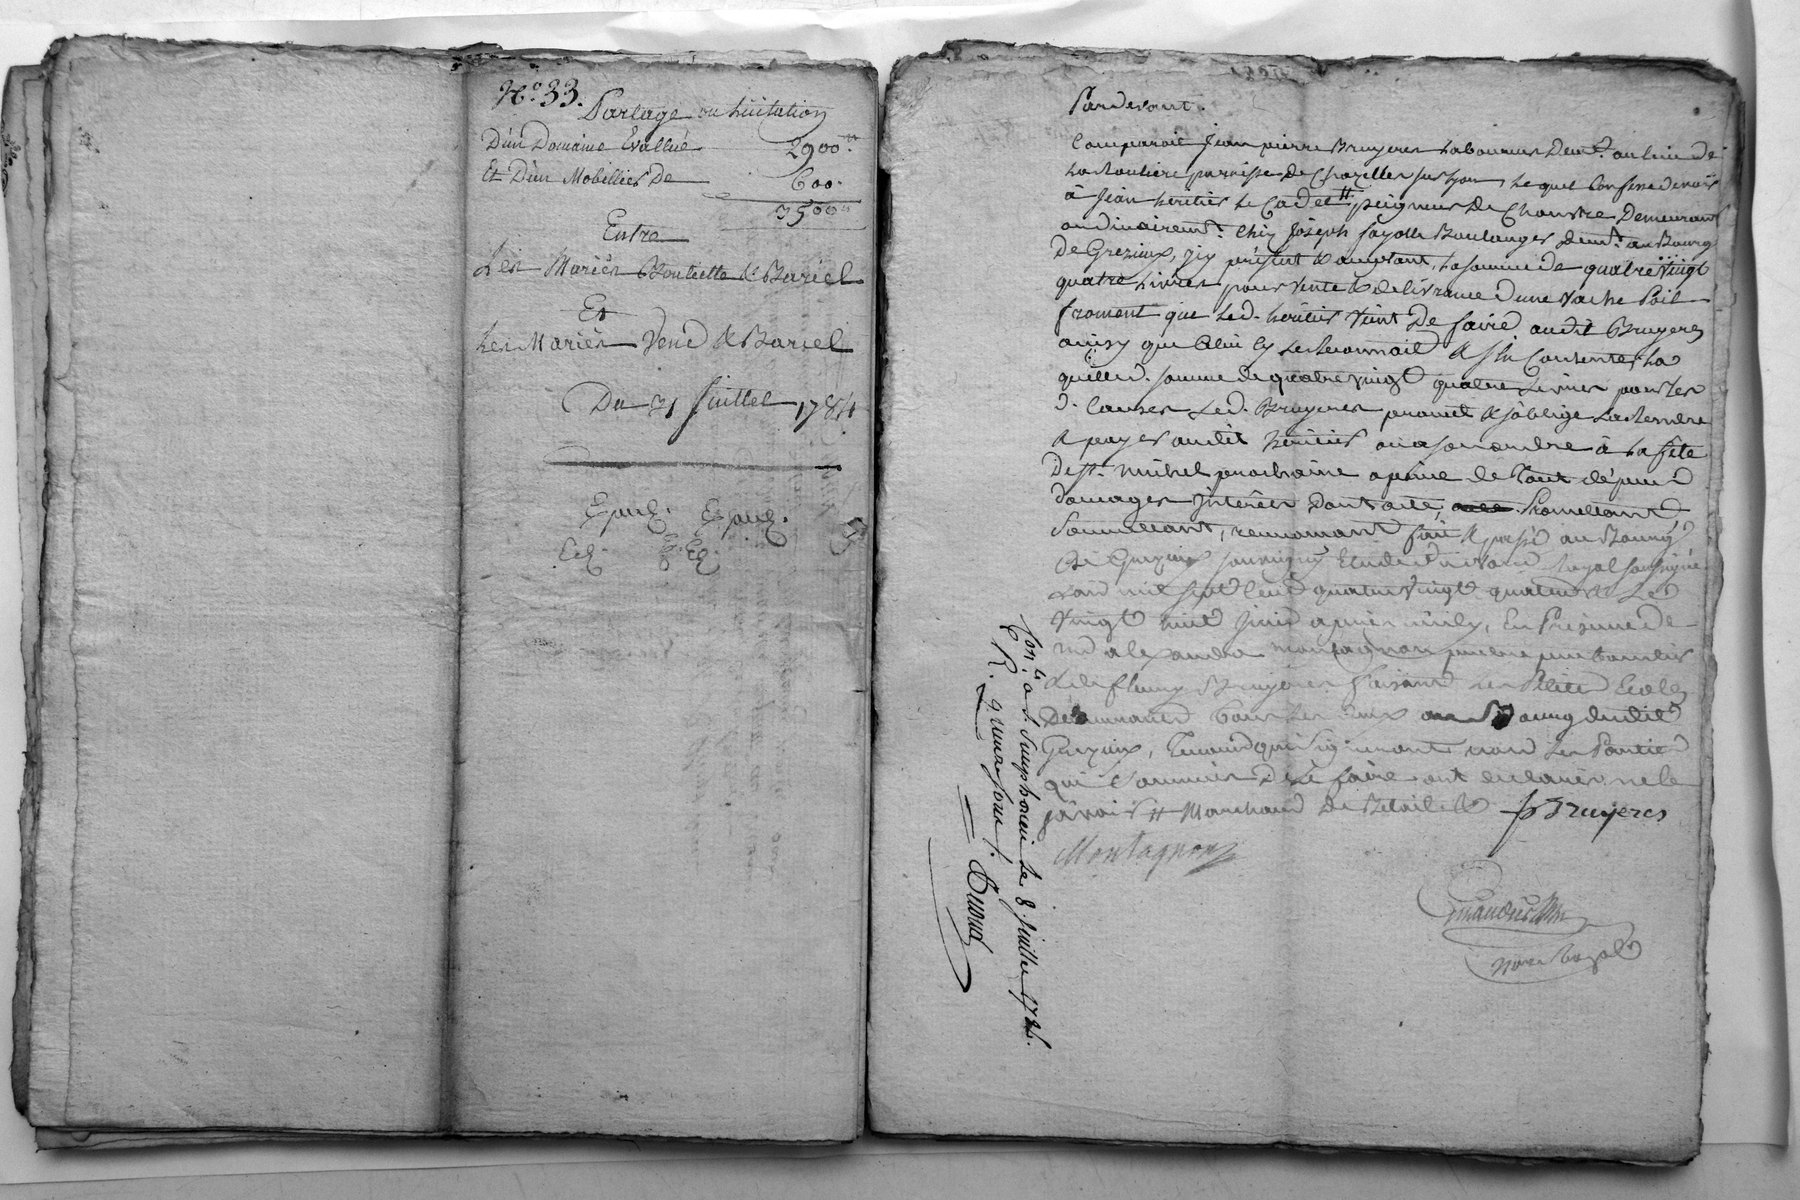 N.º 33.
Partage ou licitation
D'un Domaine Evallué 2900.ᵗᵗ
Et D'un Mobillier De 600.
3500ᵗᵗ
Entre
Les Mariés & Bariel
Et
Les Mariés & Bariel
Du 31 Juillet 1784
Expéd. Expéd.
Pardevant.
Comparait Jean pierre Bruyeres Laboureur Demt. au lieu de
paroisse de Chazelles sur Lyon, Lequel Confesse devoir
à Jean héritier Le Cadet # peigneur De Chanvre Demeurant
ordinairemt. Chez Joseph fayolle Boulanger demt. au Bourg
De Grezieux, ici présent & acceptant, La somme de quatre vingt
quatre Livres pour vente & delivrance d'une vache Poil
froment que Led. héritier vient De faire audit Bruyeres
ainsy que Celui cy Le Reconnait & s'en Contente, La
quelle d. somme de quatre vingt quatre Livres pour les
d. Causes Led. Bruyeres promet & s'oblige La Rendre
& payer audit héritier ou a son ordre à La fête
De st. michel prochaine a peine de Tout dépend
domages Interêts Dont acte, Promettant
Soumettant, renonçant fait & passé au Bourg
De Grezieux Etude du Royal soussigné
L'an mil sept Cent quatre vingt quatre & Le
vingt huit Juin après midy, En Présence De
alexandre montagnon
& de fleury Bruyeres faisant Les Petites Ecoles
Demeurants tous Les deux au Bourg dudit
Grezieux, Témoins qui signeront non Les Parties
qui sommées De Le faire ont déclaré ne le
savoir # Marchand De Betail &
f Bruyeres
Montagnon
nore Royal
Con.lé a St. Simphorien Le 8 Juillet 1784.
R. quinze sous s.